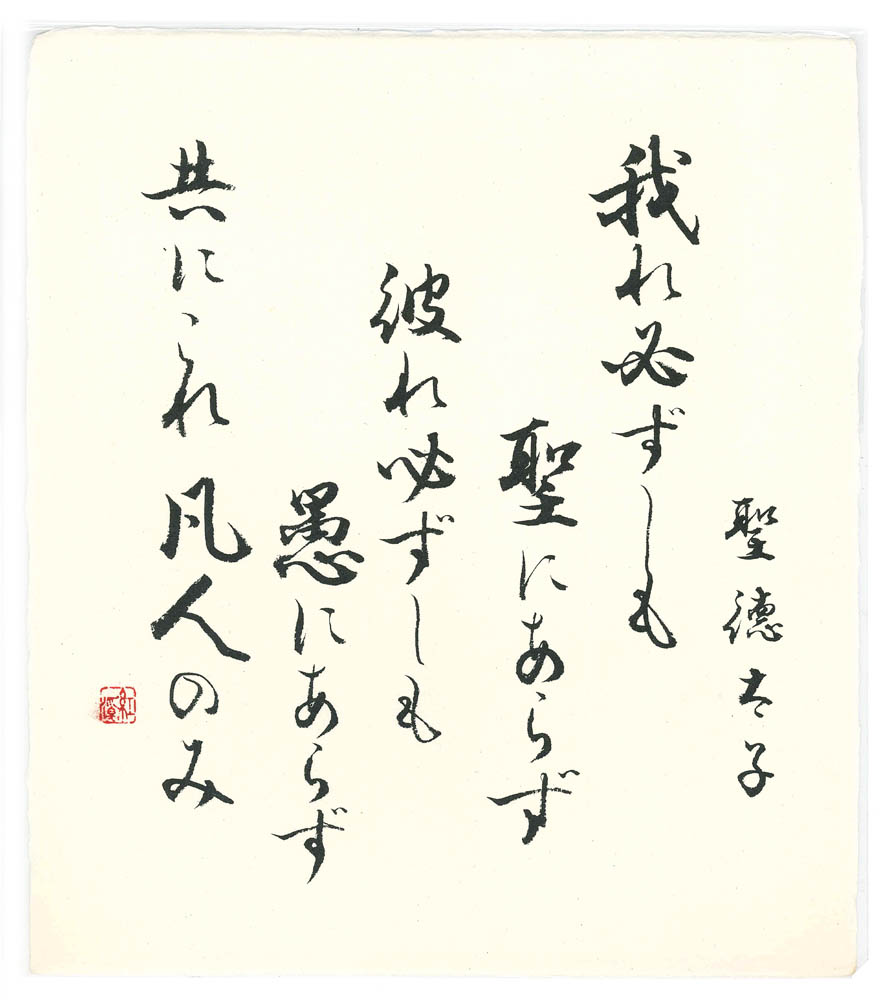 聖徳太子
我れ必ずしも
聖にあらず
彼れ必ずしも
愚にあらず
共にこれ凡人のみ